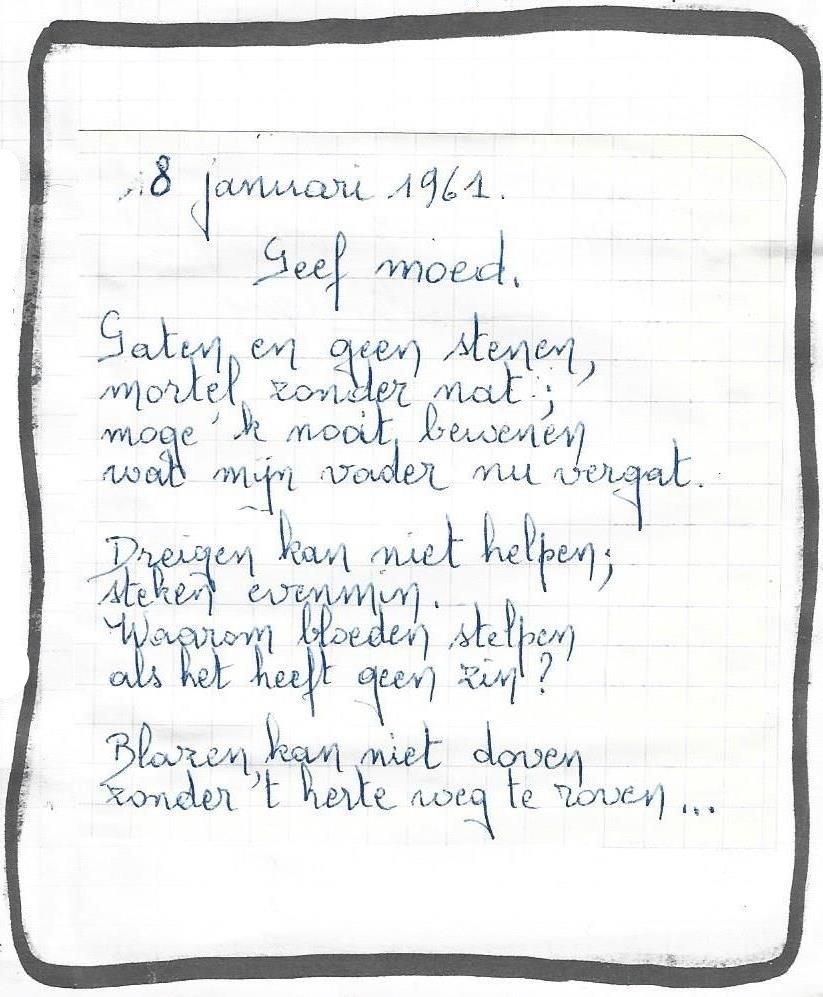 8 januari 1961.
Geef moed.
Gaten en geen stenen,
mortel zonder nat;
moge 'k nooit bewenen
wat mijn vader nu vergat.
Dreigen kan niet helpen;
steken evenmin.
Waarom bloeden stelpen
als het heeft geen zin?
Blazen kan niet doven
zonder 't herte weg te roven...